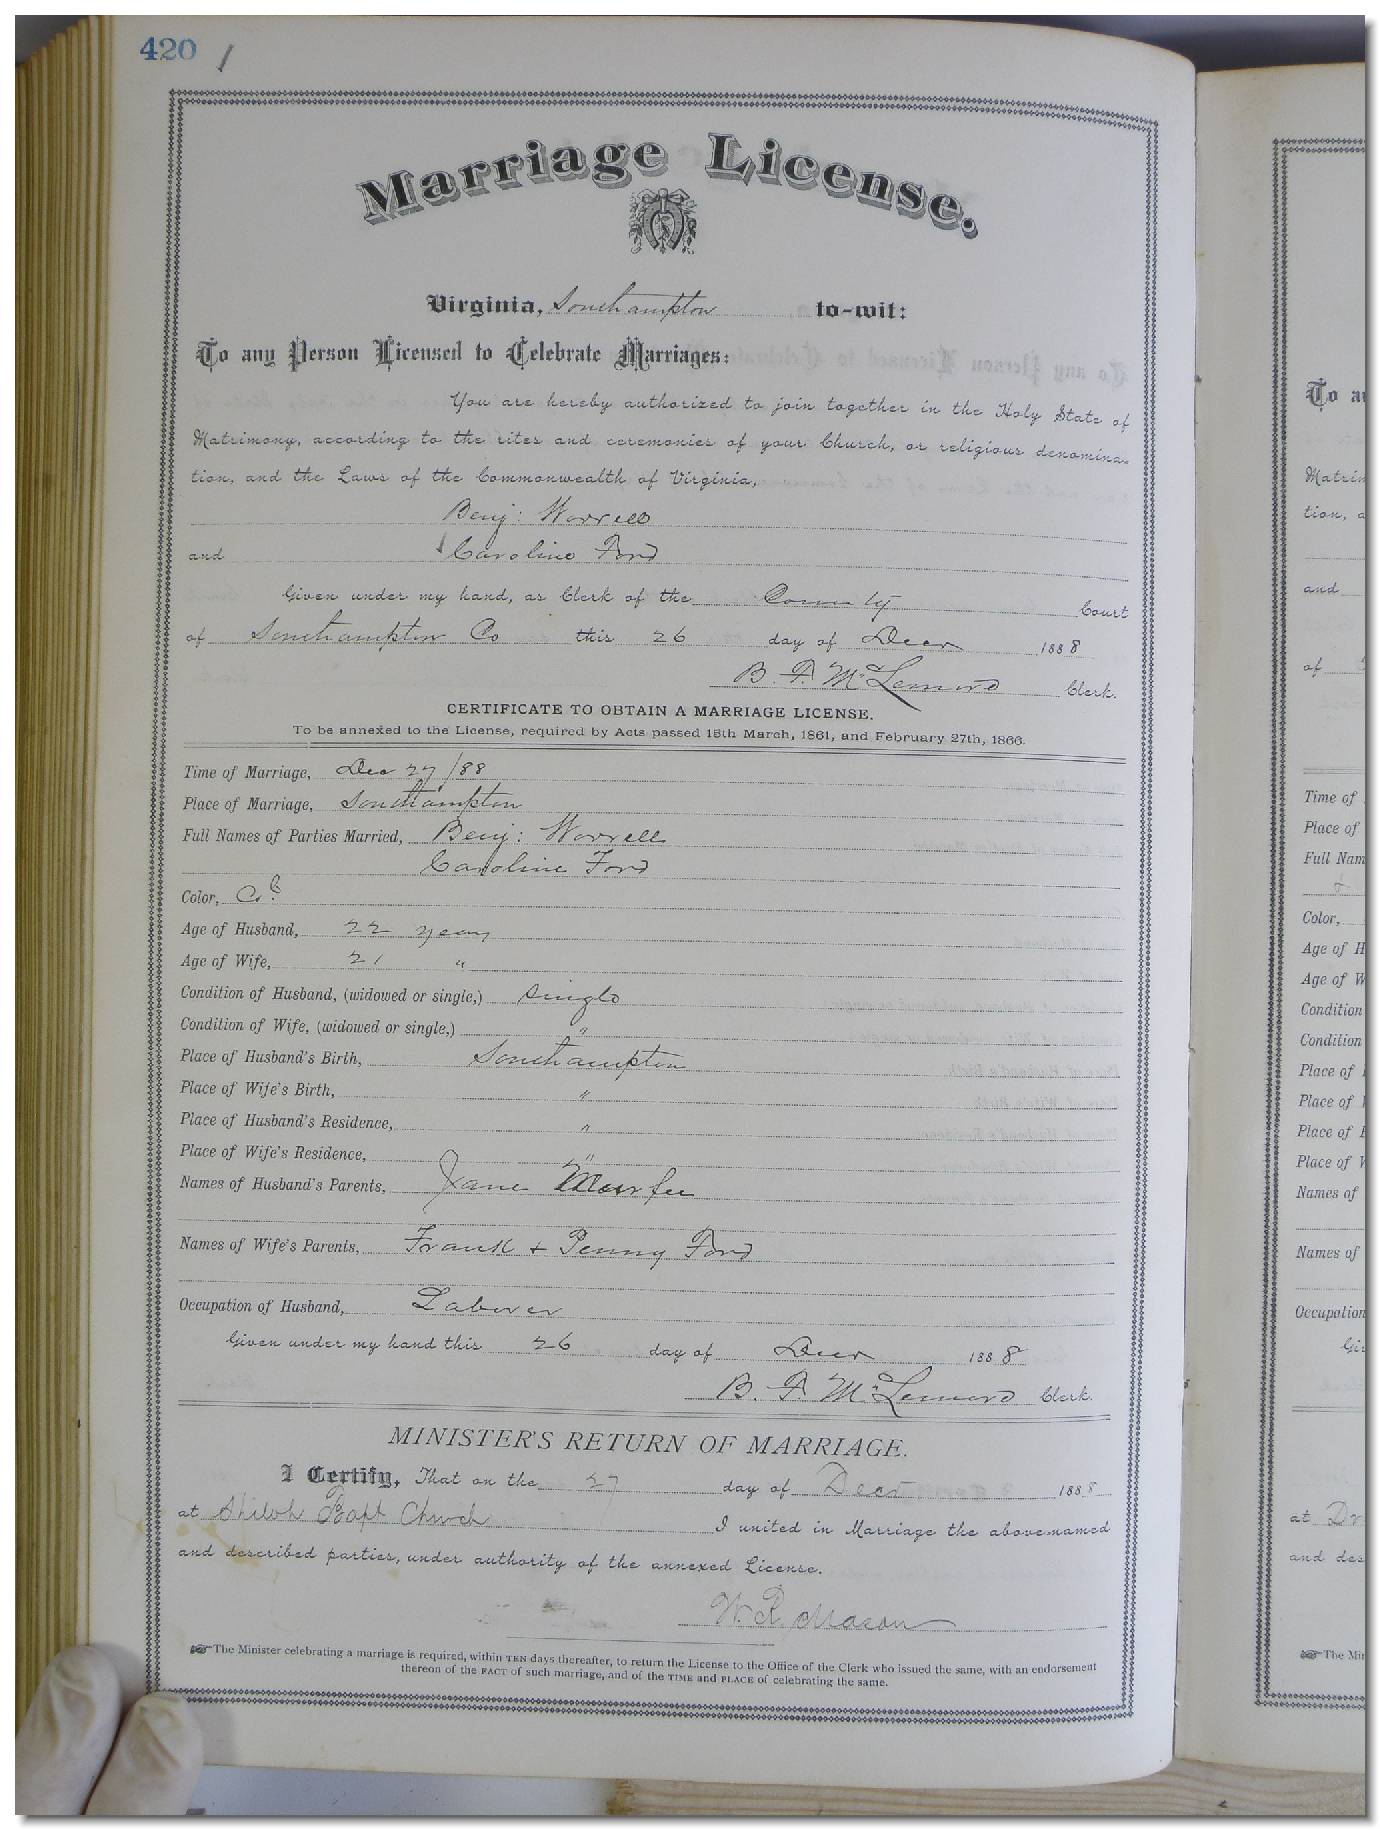 420 /
Marriage License.
Virginia, Southampton to-wit:
To any Person Licensed to Celebrate Marriages:
You are hereby authorized to join together in the Holy State of
Matrimony, according to the rites and ceremonies of your Church, or religious denomina-
tion, and the Laws of the Commonwealth of Virginia,
Benj: Worrell
and Caroline Ford
Given under my hand, as Clerk of the County Court
of Southampton Co this 26 day of Decr 1888
B. F. McLemore Clerk.
CERTIFICATE TO OBTAIN A MARRIAGE LICENSE.
To be annexed to the License, required by Acts passed 15th March, 1861, and February 27th, 1866.
Time of Marriage, Dec 27/88
Place of Marriage, Southampton
Full Names of Parties Married, Benj: Worrell
Caroline Ford
Color, Cold
Age of Husband, 22 years
Age of Wife, 21 "
Condition of Husband, (widowed or single,) single
Condition of Wife, (widowed or single,) "
Place of Husband's Birth, Southampton
Place of Wife's Birth, "
Place of Husband's Residence, "
Place of Wife's Residence, "
Names of Husband's Parents, Jane
Names of Wife's Parents, Frank + Penny Ford
Occupation of Husband, Laborer
Given under my hand this 26 day of Decr 1888
B. F. McLemore Clerk.
MINISTER'S RETURN OF MARRIAGE.
I Certify, That on the 27 day of Decr 1888
at Shiloh Bapt Church I united in Marriage the above-named
and described parties, under authority of the annexed License.
W. R. Mason
The Minister celebrating a marriage is required, within TEN days thereafter, to return the License to the Office of the Clerk who issued the same, with an endorsement
thereon of the FACT of such marriage, and of the TIME and PLACE of celebrating the same.
To a
Matrim
tion, a
and
of
Time of
Place of
Full Nam
Color,
Age of H
Age of W
Condition
Condition
Place of
Place of
Place of
Place of
Names of
Names of
Occupation
Gi
at Dr
and des
The Mi